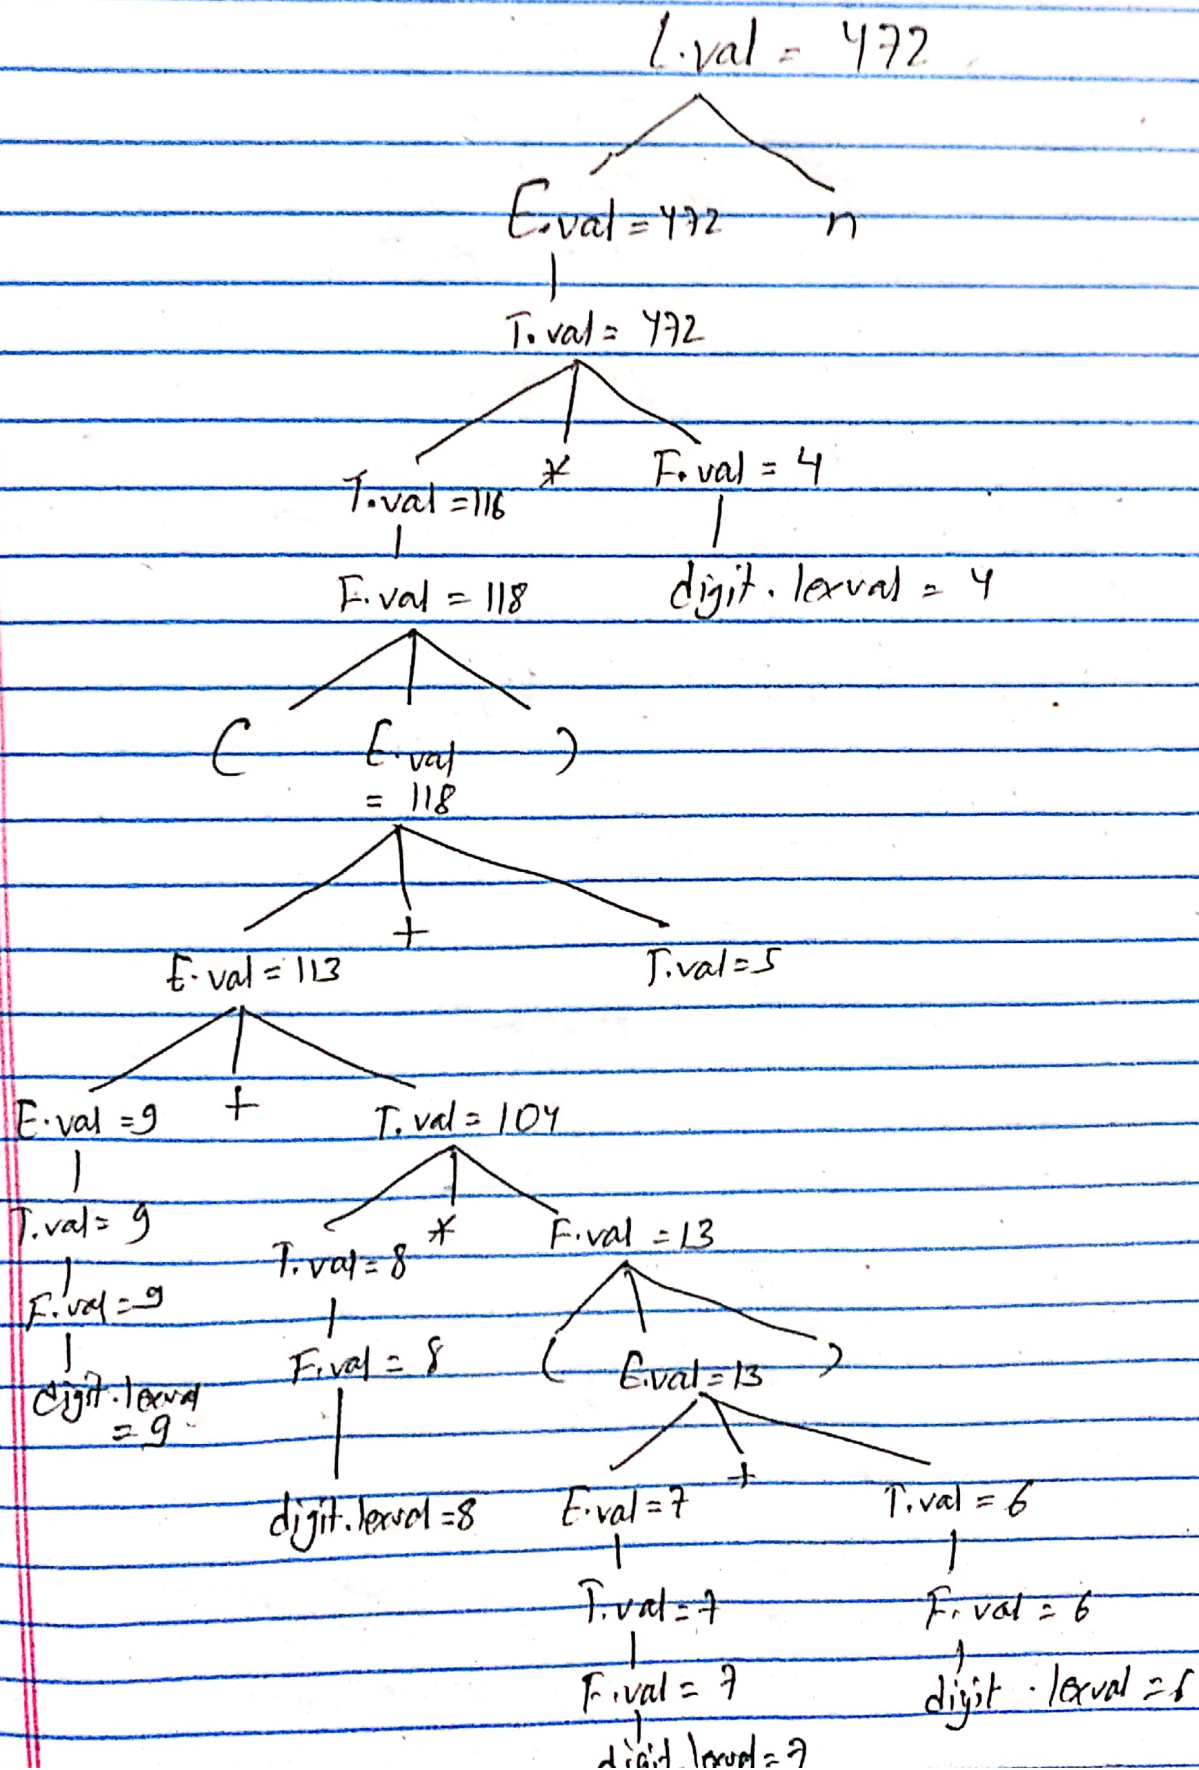 L.val = 472
E.val = 472 n
T.val = 472
T.val = 116 * F.val = 4
F.val = 118 digit.lexval = 4
( E.val )
= 118
+
E.val = 113 T.val = 5
E.val = 9 + T.val = 104
T.val = 9 T.val = 8 * F.val = 13
F.val = 9 F.val = 8 ( E.val = 13 )
digit.lexval
= 9
+
digit.lexval = 8 E.val = 7 T.val = 6
T.val = 7 F.val = 6
F.val = 7 digit.lexval = 6
digit.lexval = 7